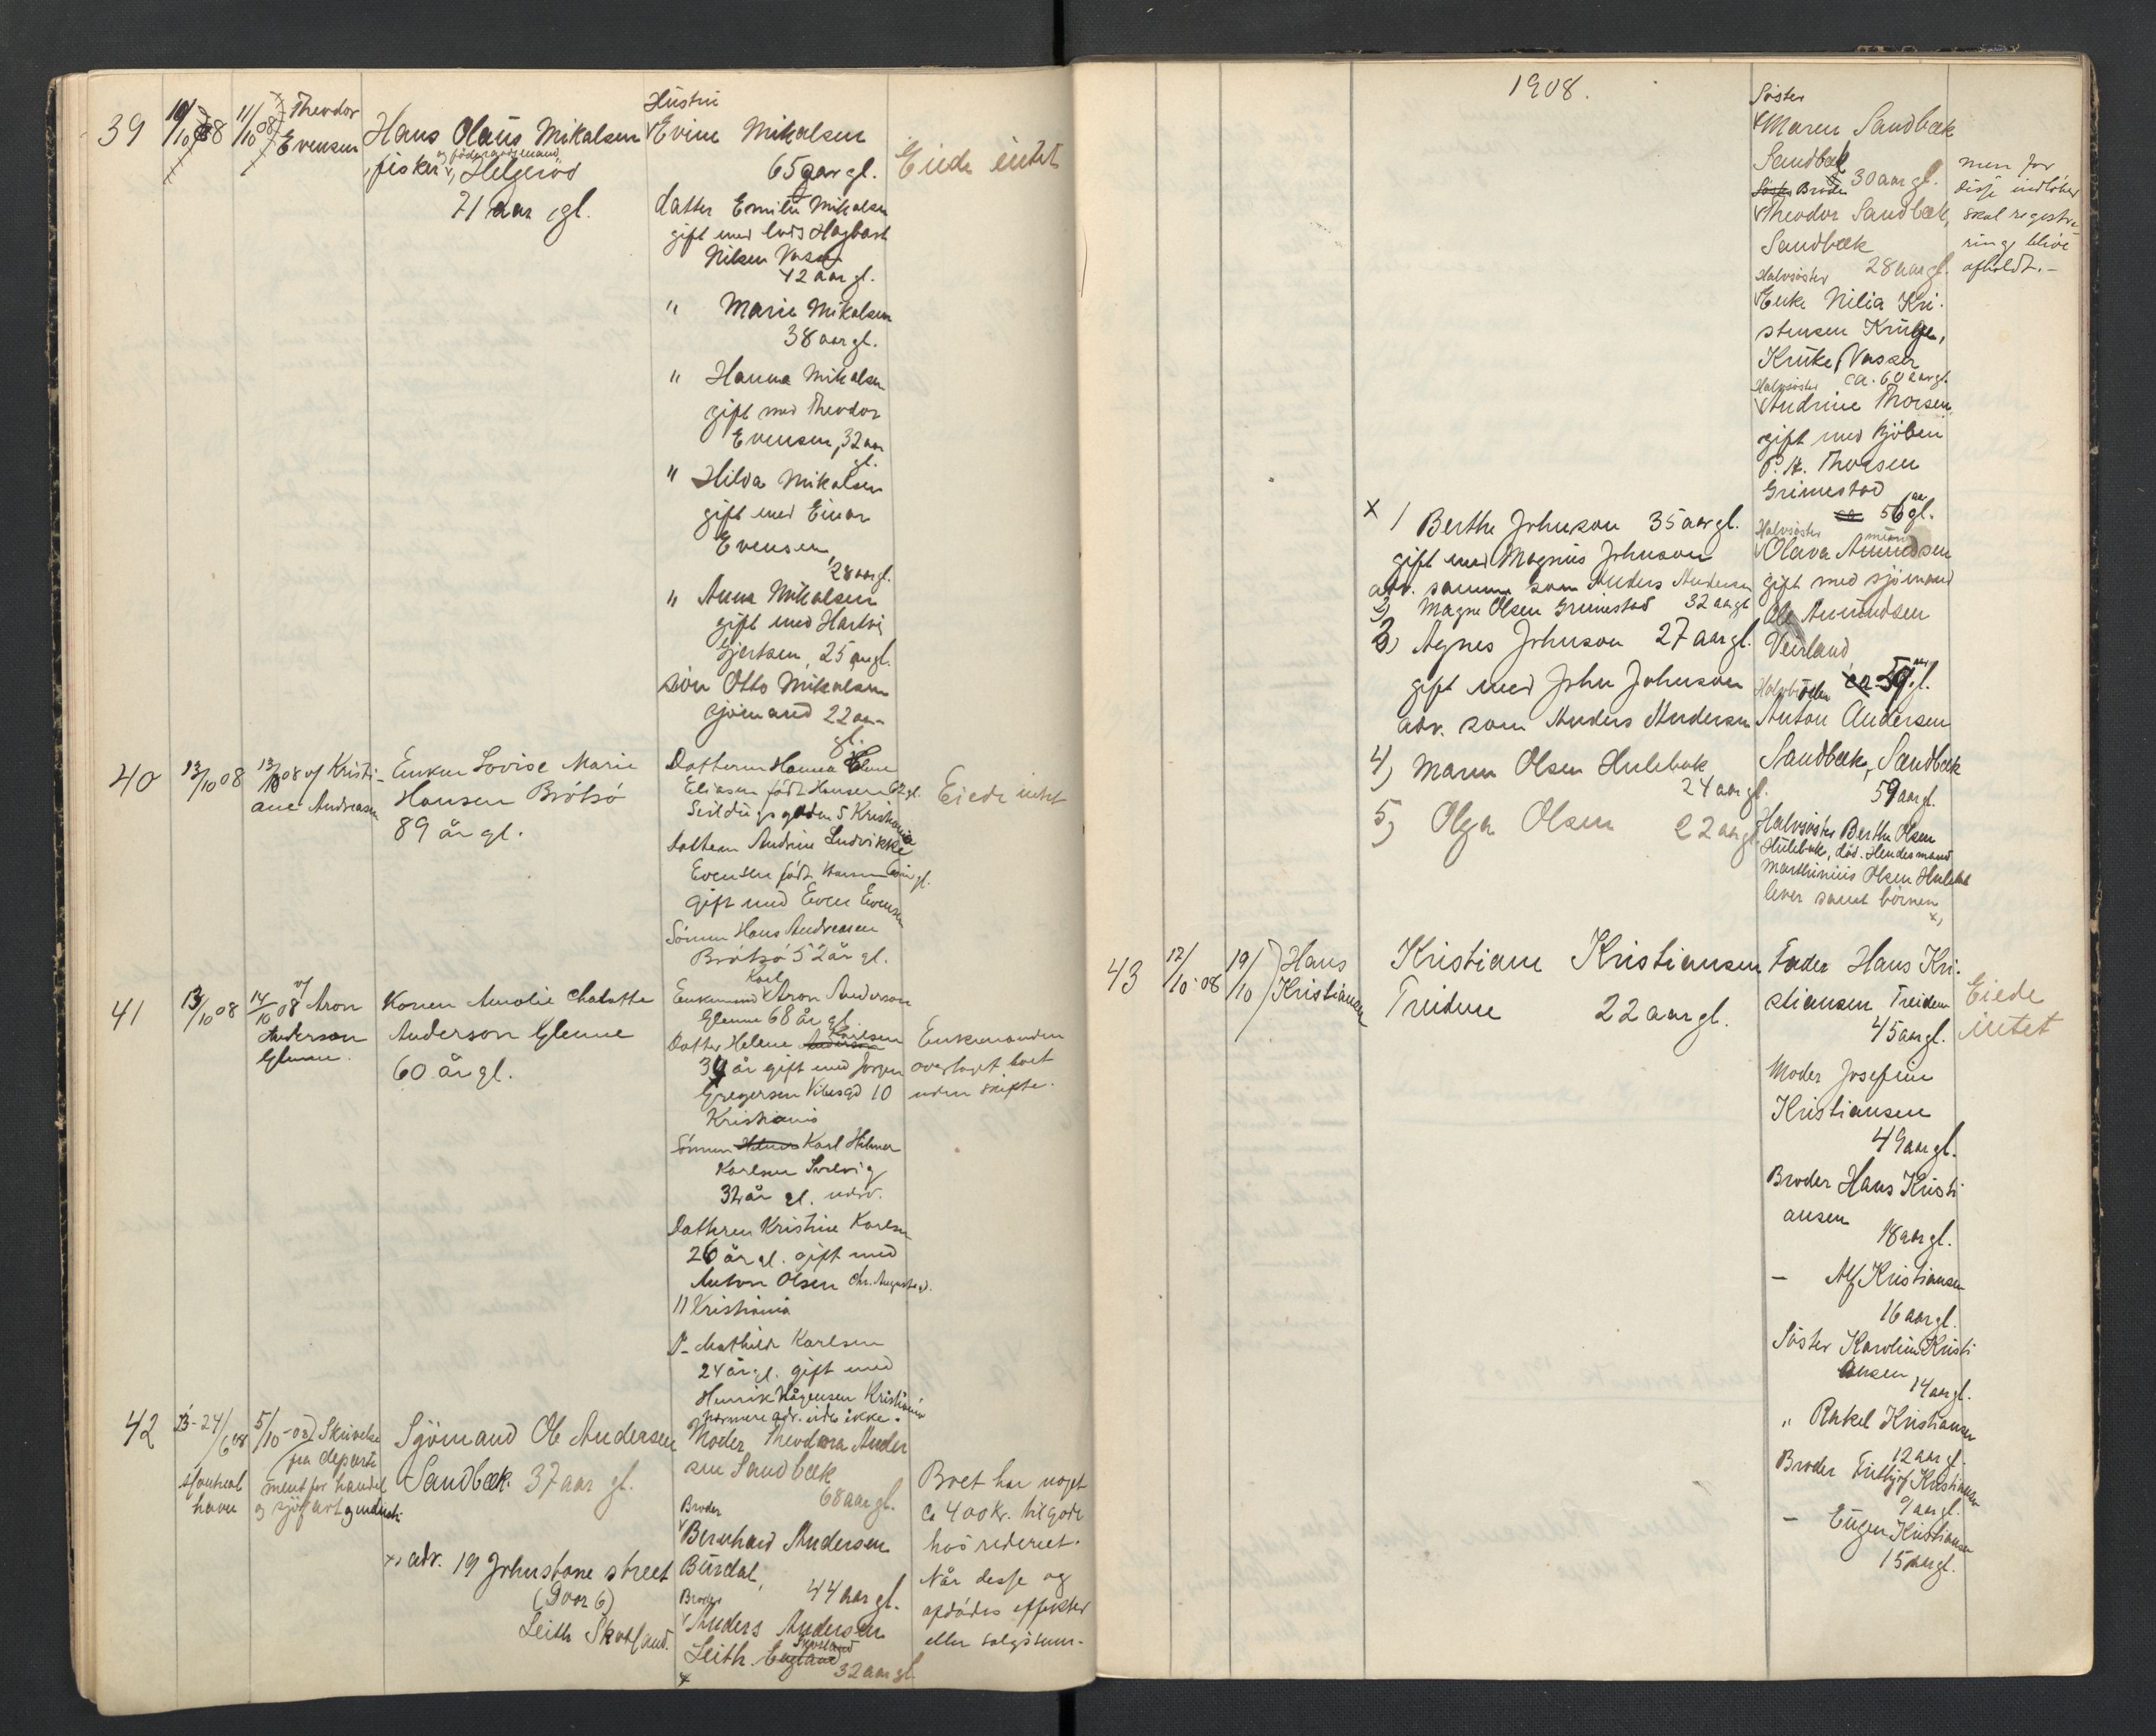 39
10/10 08
11/10 08
Theodor
Evensen
Hans Olaus Mikalsen
fisker, Helgerød
71 aar gl.
Hustru
Evine Mikalsen
65 aar gl.
datter Emilie Mikalsen
gift med Lars Hagbart
Nilsen Vasser
42 aar gl.
" Marie Mikalsen
38 aar gl.
" Hanna Mikalsen
gift med Theodor
Evensen, 32 aar
gl.
" Hilda Mikalsen
gift med Einar
Evensen
28 aar gl.
" Anna Mikalsen
gift med Hartvig
Gjertsen, 25 aar gl.
søn Otto Mikalsen
sjømand 22 aar
gl.
Eiede intet
40
13/10 08
13/10 08 v/ Kristi-
ane Andreasen
Enken Lovise Marie
Hansen Brøtsø
89 år gl.
Datteren Hanna
Eliasen født Hansen 62 gl.
Seildugsgaden 5 Kristiania
Datteren Andrine Ludvikke
Evensen født
gift med Even Evensen
Sønnen Hans Andreasen
Brøtsø 52 år gl.
Eiede intet
41
13/10 08
14/10 08 v/ Aron
Anderson
Glenne.
Konen Amalie Chalotte
Anderson Glenne
60 år gl.
Enkemand Karl Aron Anderson
Glenne 68 år gl.
Datter Helene Anderson Karlsen
34 år gift med Jørgen
Gregersen Vibesgd 10
Kristiania
Sønnen Hilmer Karl Hilmer
Karlsen Solvig
32 år gl. udv.
Datteren Kristine Karlsen
26 år gl. gift med
Anton Olsen Chr. Augustsgd.
11 Kristiania
D- Mathilde Karlsen
24 år gl. gift med
Henrik Hågensen Kristiania
nærmere adr. vides ikke.
Enkemanden
overtaget boet
uden skifte.
42
24/6 08
Montreal
havn
5/10-08 Skrivelse
fra departe
ment for handel
og sjøfart og industri
Sjømand Ole Andersen
Sandbæk. 37 aar gl.
x, adr. 19 Johnstone street
(Door 6)
Leith Skotland.
Moder Theodora Ander
sen Sandbæk
68 aar gl.
Broder
Bernhard Andersen
Burdal,
44 aar gl.
Broder
Anders Andersen
Leith England Skotland
32 aar gl.
x
Boet har noget
ca 400 kr. tilgode
hos rederiet.
Når desse og
afdødes effekter
eller salgssum-
1908.
Søster
Maren Sandbæk
Sandbæk
30 aar gl.
Søster Broder
Theodor Sandbæk,
Sandbæk
28 aar gl.
Halvsøster
Enke Nilia Kri-
stensen Kruge,
Kruke, Vasser
ca. 60 aar gl.
Halvsøster
Andrine Thorsen
gift med
P. A. Thorsen
Grimestad
ca 56 aar gl.
Halvsøster
Olava Amundsen
gift med sjømand
Ole Amundsen
Veierland
ca 59 aar gl.
Halvbroder
Anton Andersen
Sandbæk, Sandbæk
59 aar gl.
Halvsøster Berthe Olsen
Hulebak, død. Hendes mand
Marthinius Olsen Hulebak
lever samt børnen
x,
men for
disse indløber
skal registre-
ring blive
afholdt.-
x 1 Berthe Johnson 35 aar gl.
gift med Magnus Johnson
adr. samme som Anders Andersen
2) Magne Olsen Grimestad 32 aar gl
3) Agnes Johnson 27 aar gl.
gift med John Johnson
adr. som Anders Andersen
4) Maren Olsen Hulebak
24 aar gl.
5) Olga Olsen 22 aar gl
43
12/10-08
19/10
Hans
Kristiansen
Kristiane Kristiansen
Treidene 22 aar gl.
Fader Hans Kri-
stiansen Treidene
45 aar gl.
Moder Josefine
Kristiansen
49 aar gl.
Broder Hans Kristi
ansen
18 aar gl.
- Alf Kristiansen
16 aar gl.
Søster Karoline Kristi
ansen
14 aar gl.
" Rakel Kristiansen
12 aar gl.
Broder Frithjof Kristiansen
9 aar gl.
- Eugen Kristiansen
15 aar gl.
Eiede
intet